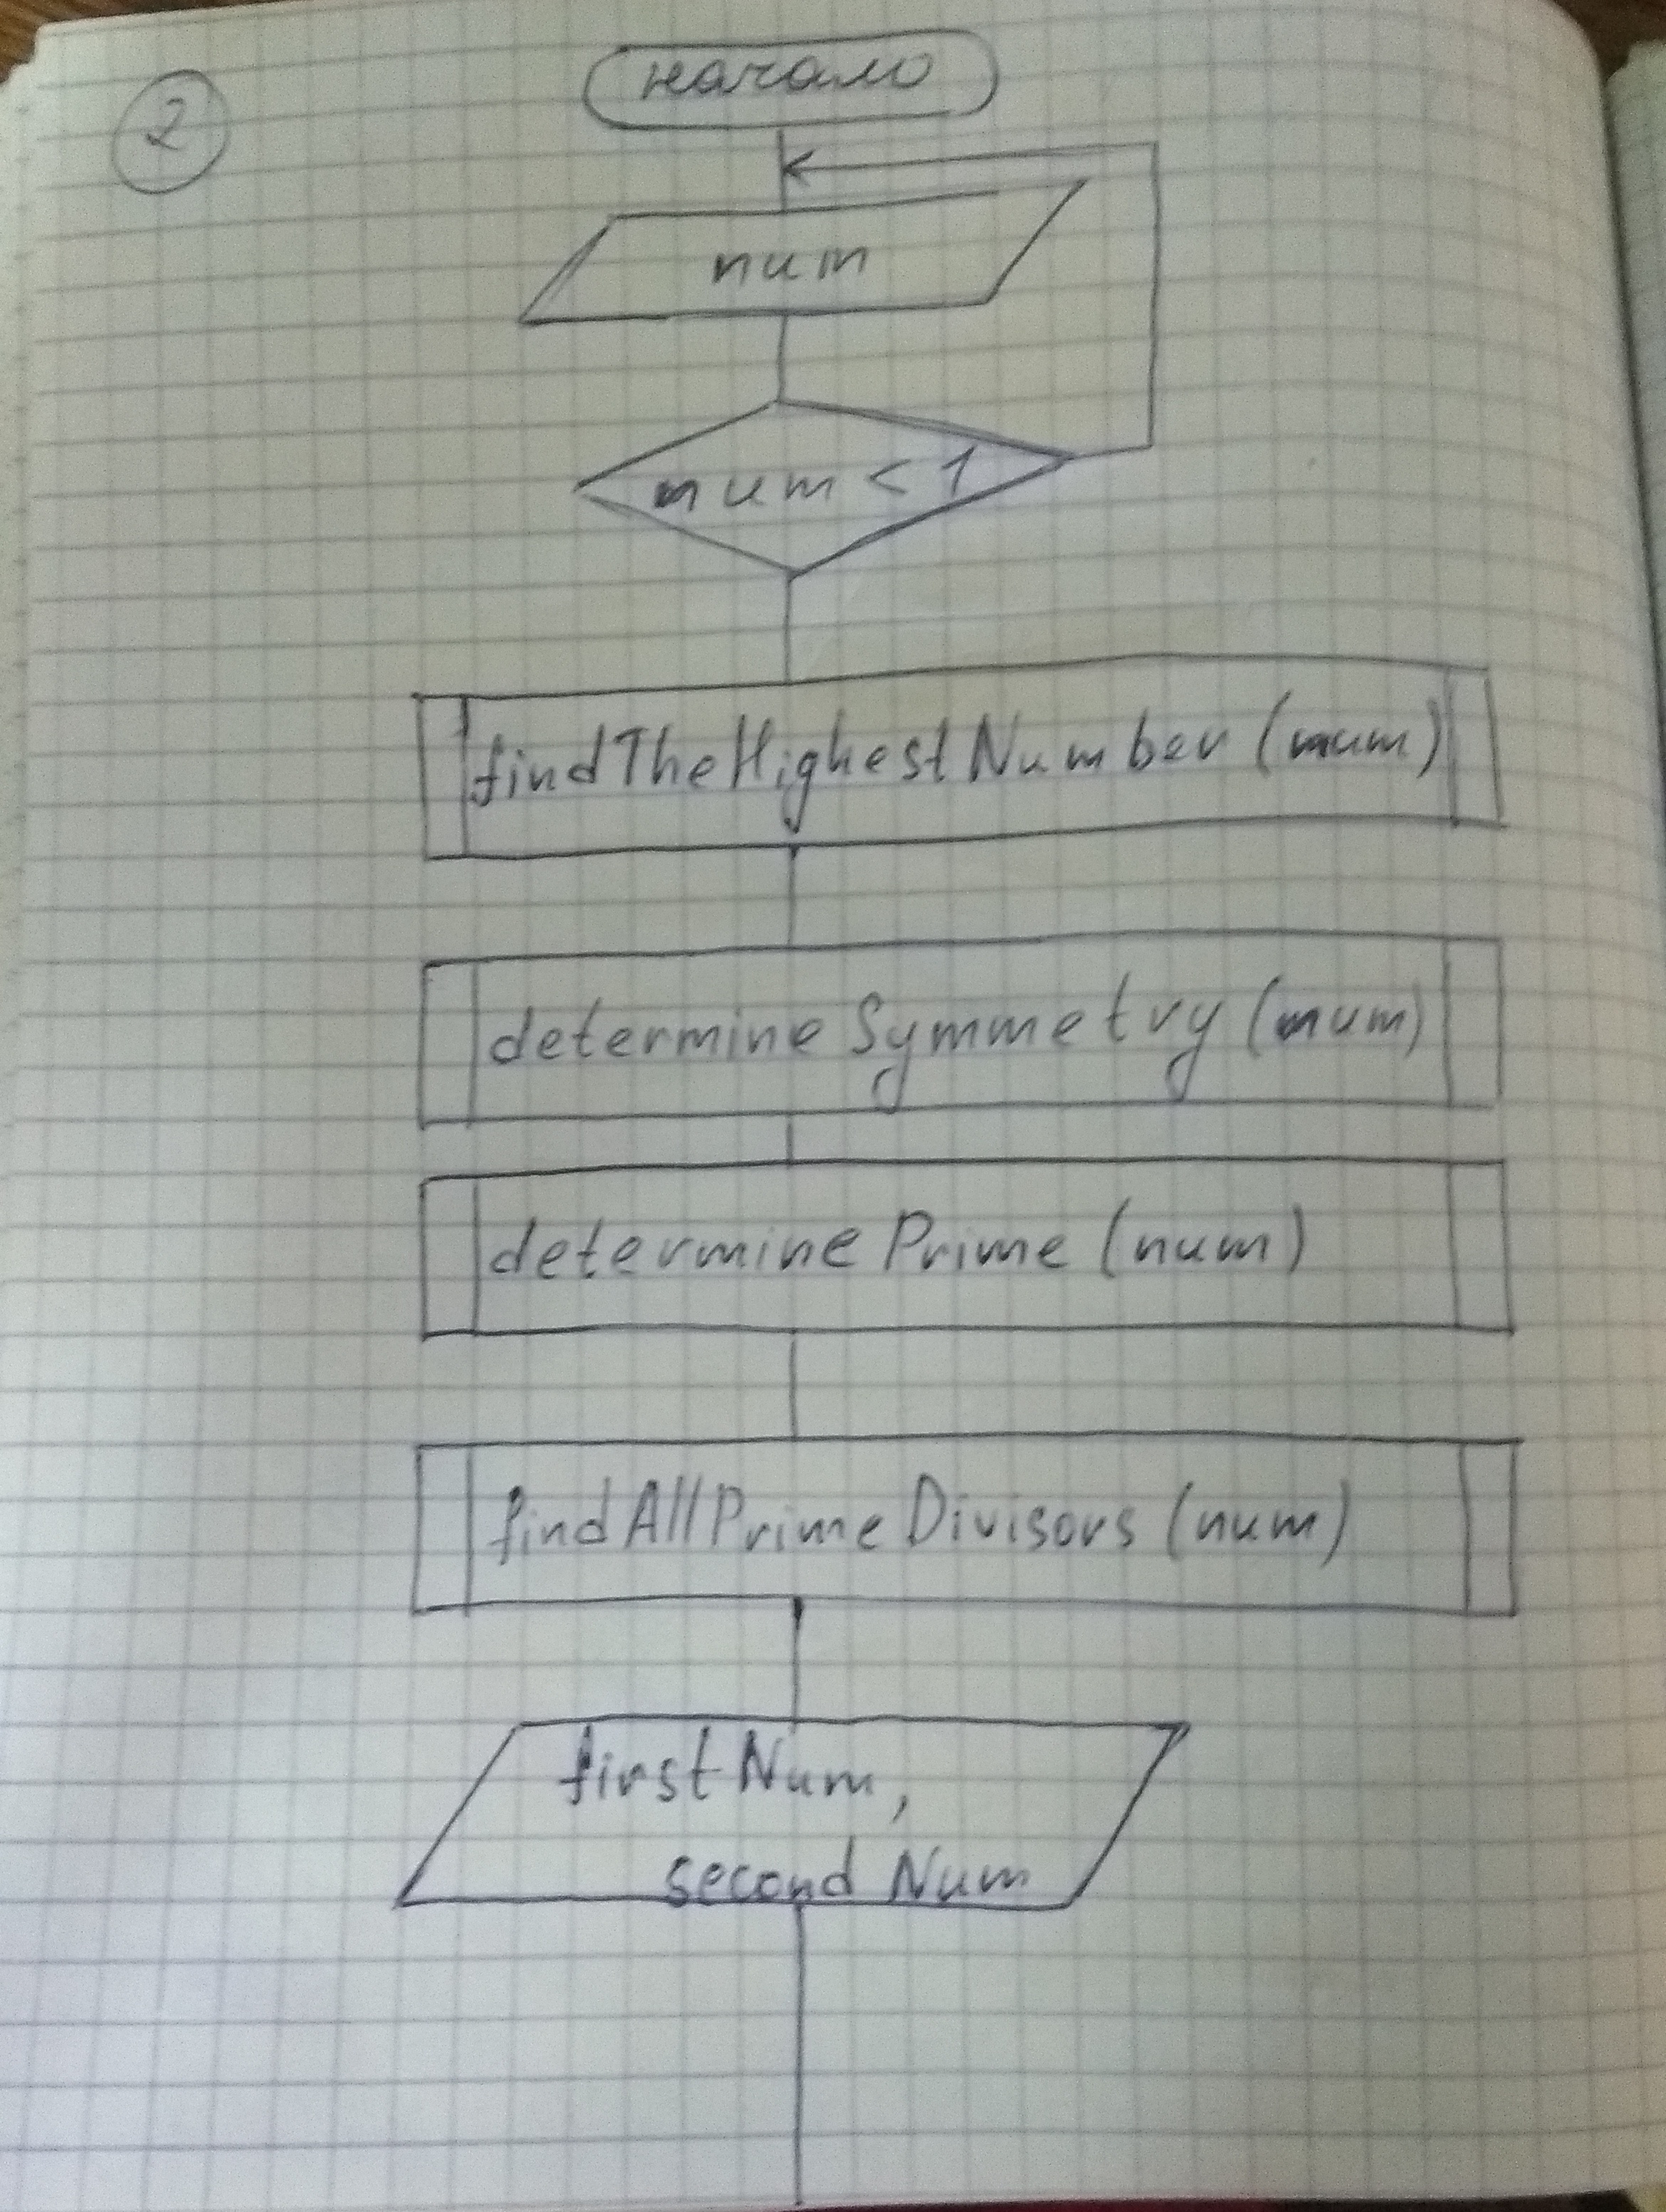 2
начало
num
num < 1
findTheHighestNumber (num)
determineSymmetry (num)
determinePrime (num)
findAllPrimeDivisors (num)
firstNum,
secondNum